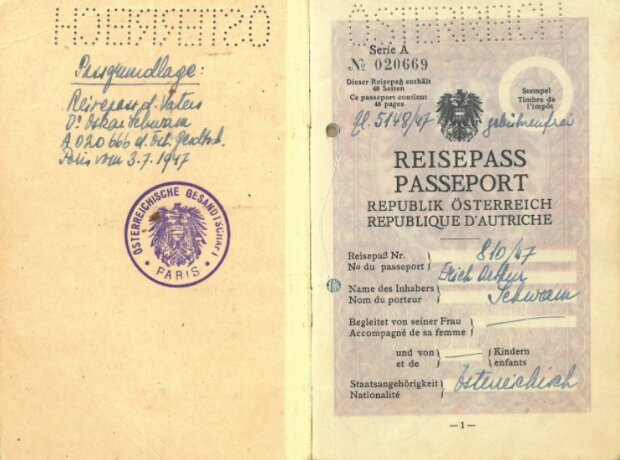 ÖSTERREICH
Passgrundlage:
Reisepass d. Vaters
Dr Oskar Schwam
A 020666 d. Öst. Gesdtsch.
Paris vom 3.7.1947
ÖSTERREICHISCHE GESANDTSCHAFT
* PARIS *
ÖSTERREICH
Serie A
№ 020669
Dieser Reisepaß enthält
48 Seiten
Ce passeport contient
48 pages
Stempel
Timbre de
l'impôt
5148/47 gebührenfrei
REISEPASS
PASSEPORT
REPUBLIK ÖSTERREICH
REPUBLIQUE D'AUTRICHE
Reisepaß Nr. 810/47
No du passeport
Erich Arthur
Name des Inhabers
Nom du porteur Schwam
Begleitet von seiner Frau
Accompagné de sa femme
und von Kindern
et de enfants
Staatsangehörigkeit österreichisch
Nationalité
—1—